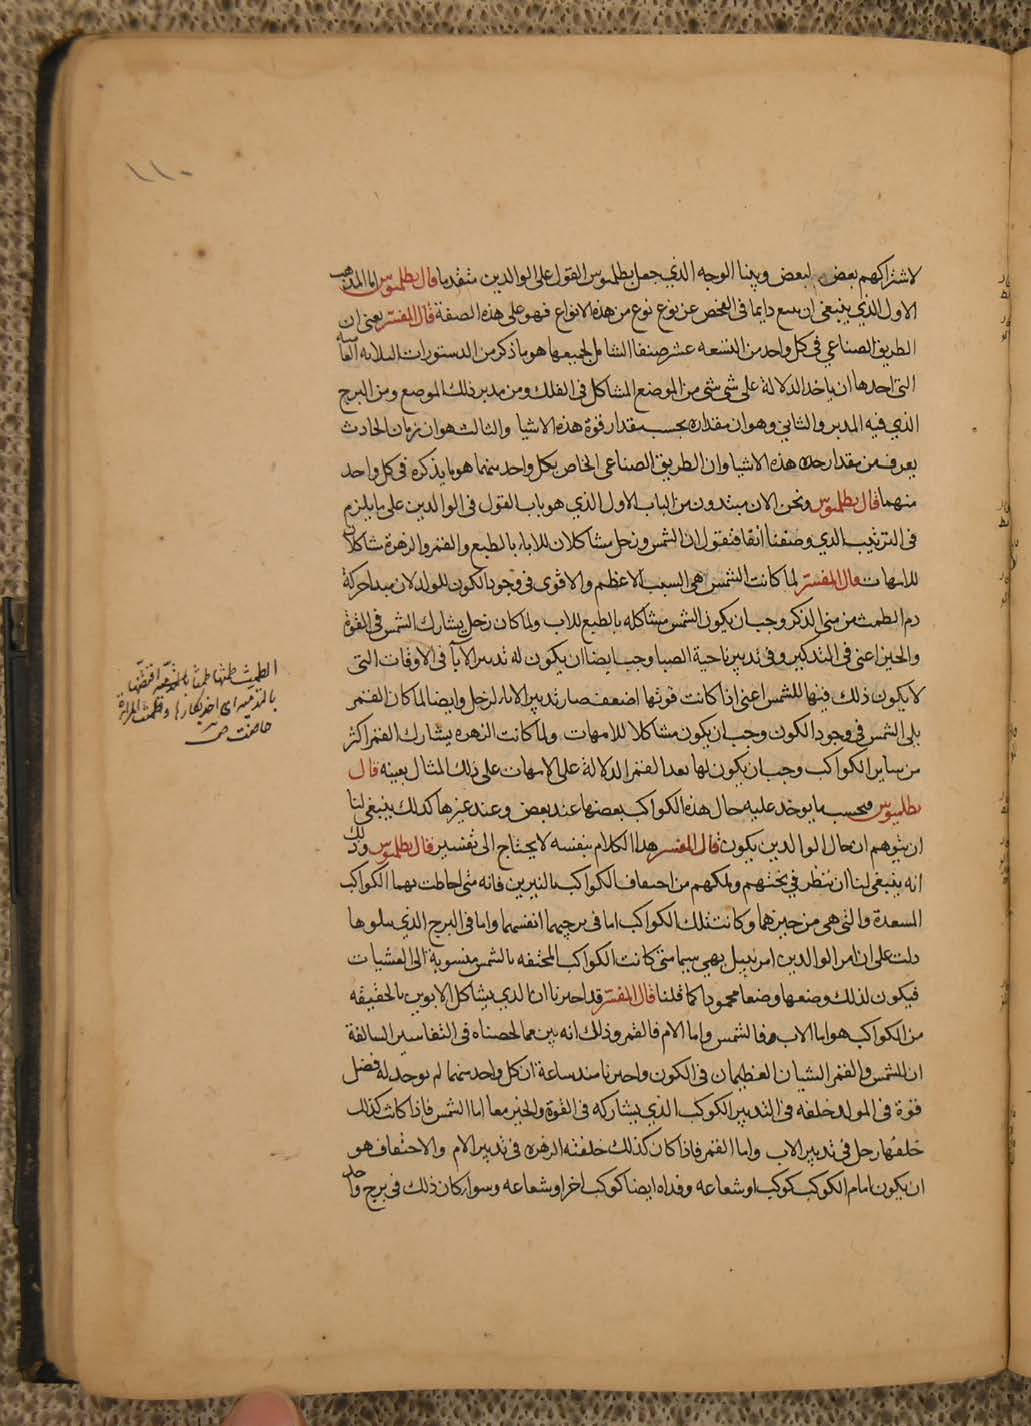 ١١٠
لاشتراكهم بعض لبعض وبينا الوجه الذي جعل بطلميوس القول على الوالدين متقدما قال بطلميوس اما المذهب
الاول الذي ينبغي ان يتبع دايما في الفحص عن نوع نوع من هذه الانواع فهو على هذه الصفة قال المفسر يعني ان
الطريق الصناعي في كل واحد من التسعه عشر صنفا الشامل لجميعها هو ما ذكر من الدستورات الثلاثه العامية
التي احدها ان ياخد الدلالة على شي شي من الموضع المشاكل في الفلك ومن مدبر ذلك الموضع ومن البرج
الذي فيه المدبر والثاني وهو ان مقداره بحسب مقدار قوة هذه الاشيا والثالث هو ان زمان الحادث
يعرف من مقدار حركه هذه الاشيا وان الطريق الصناعي الخاص بكل واحد منهما هو ما يذكره في كل واحد
منهما قال بطلميوس ونحن الان مبتدون من الباب الاول الذي هو باب القول في الوالدين على ما يلزم
في الترتيب الذي وصفنا انفا فنقول ان الشمس وزحل مشاكلان للاباء بالطبع والقمر والزهرة مشاكلان
للامهات قال المفسر لما كانت الشمس هي السبب الاعظم والاقوى في وجود الكون للولد لان مبدا حركة
دم الطمث من مني الذكر وجب ان يكون الشمس مشاكله بالطبع للاب ولما كان زحل يشارك الشمس في القوة
والحيز اعني في التذكير وفي تدبير ناحية الصبا وجب ايضا ان يكون له تدبير الابآ في الاوقات التي
لا يكون ذلك فيها للشمس اعني اذا كانت قوتها اضعف صار تدبير الاباء لزحل وايضا لما كان القمر
يلي الشمس في وجود الكون وجب ان يكون مشاكلا للامهات ولما كانت الزهره يشارك القمر اكثر
من ساير الكواكب وجب ان يكون لها بعد القمر الدلالة على الامهات على ذلك المثال بعينه قال
بطلميوس وبحسب ما يوخد عليه حال هذه الكواكب بعضها عند بعض وعند غيرها كدلك ينبغي لنا
ان نتوهم ان حال الوالدين يكون قال المفسر هدا الكلام بنفسه لا يحتاج الى تفسير قال بطلميوس ودلك
انه ينبغي لنا ان ننظر في بختهم وملكهم من احتفاف الكواكب بالنيرين فانه متى احاطت بهما الكواكب
السعدة والتي هي من حيزهما وكانت تلك الكواكب اما في برجيهما انفسهما واما في البرج الذي يتلوها
دلت على ان امر الوالدين امر نبيل بهي سيما متى كانت الكواكب المحتفه بالشمس منسوبة الى العشيات
فيكون لذلك وضعها وضعا محمودا كما قلنا قال المفسر قد اخبرنا ان الذي يشاكل الابوين بالحقيقه
من الكواكب هو اما الاب فالشمس واما الام فالقمر وذلك انه بين مما لخصناه في التفاسير السالفة
ان للشمس والقمر الشيان العظيمان في الكون واخبرنا منذ ساعة ان كل واحد منهما لم يوجد له فضل
قوة في المولد خلفه في التدبير الكوكب الذي يشاركه في القوة والحيز معا اما الشمس فاذا كانت كذلك
خلفها زحل في تدبير الاب واما القمر فاذا كان كذلك خلفته الزهره في تدبير الام والاحتفاف هو
ان يكون امام الكوكب كوكب او شعاعه وفداه ايضا كوكب اخر او شعاعه وسوا كان ذلك في برج واحد
الطمث طمثها
حاضت